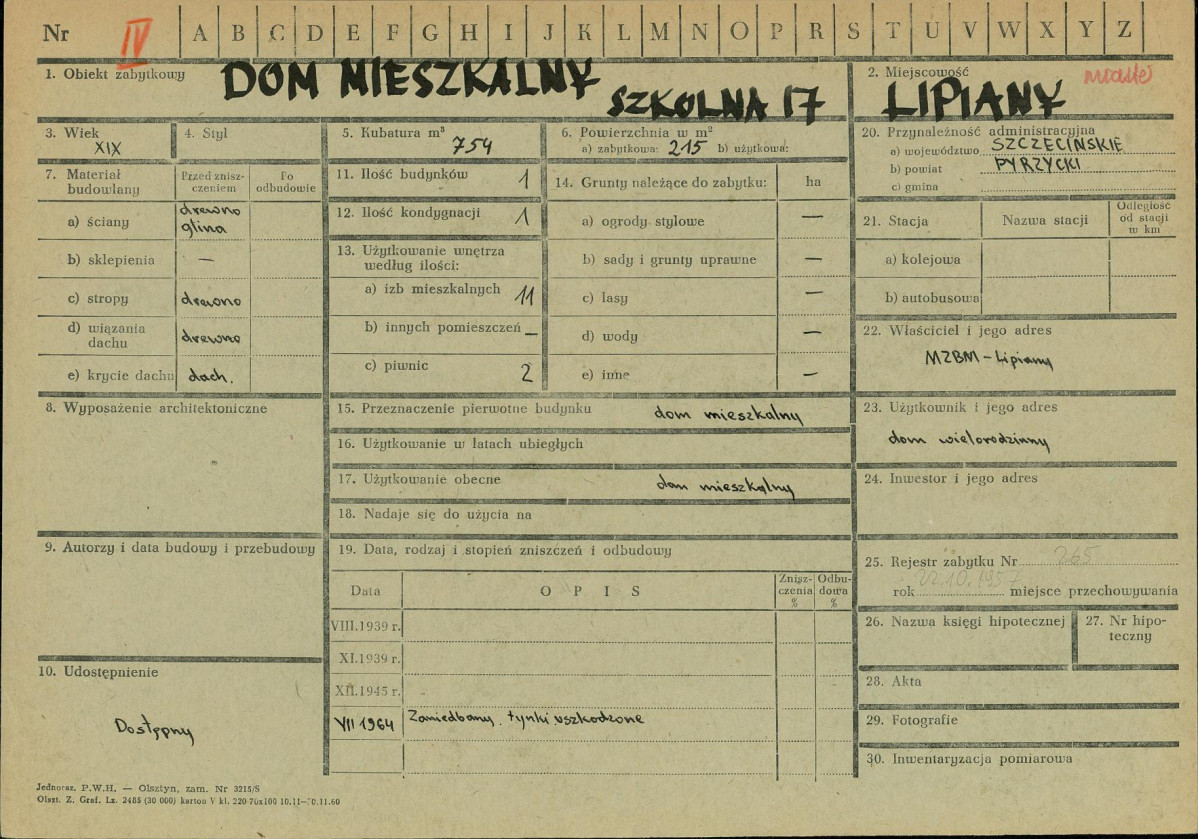 Nr IV A B C D E F G H I J K L M N O P R S T U V W X Y Z
1. Obiekt zabytkowy DOM MIESZKALNY
SZKOLNA 17
2. Miejscowość
LIPIANY
3. Wiek
XIX
4. Styl
5. Kubatura m³
754
6. Powierzchnia w m²
a) zabytkowa: 215 b) użytkowa:
20. Przynależność administracyjna
a) województwo SZCZECIŃSKIE
b) powiat PYRZYCKI
c) gmina
7. Materiał budowlany
Przed zniszczeniem
Po odbudowie
a) ściany drewno
glina
b) sklepienia —
c) stropy drewno
d) wiązania dachu drewno
e) krycie dachu dach.
11. Ilość budynków 1
12. Ilość kondygnacji 1
13. Użytkowanie wnętrza
według ilości:
a) izb mieszkalnych 11
b) innych pomieszczeń —
c) piwnic 2
14. Grunty należące do zabytku: ha
a) ogrody stylowe —
b) sady i grunty uprawne —
c) lasy —
d) wody —
e) inne —
21. Stacja
Nazwa stacji
Odległość
od stacji
w km
a) kolejowa
b) autobusowa
22. Właściciel i jego adres
MZBM – Lipiany
8. Wyposażenie architektoniczne
15. Przeznaczenie pierwotne budynku dom mieszkalny
16. Użytkowanie w latach ubiegłych
17. Użytkowanie obecne dom mieszkalny
18. Nadaje się do użycia na
23. Użytkownik i jego adres
dom wielorodzinny
24. Inwestor i jego adres
9. Autorzy i data budowy i przebudowy
19. Data, rodzaj i stopień zniszczeń i odbudowy
Data
OPIS
Zniszczenia %
Odbudowa %
VIII.1939 r.
XI.1939 r.
XII.1945 r.
VII 1964 Zaniedbany, tynki uszkodzone
25. Rejestr zabytku Nr 265
rok 22.10.1957 miejsce przechowywania
26. Nazwa księgi hipotecznej
27. Nr hipoteczny
28. Akta
29. Fotografie
30. Inwentaryzacja pomiarowa
10. Udostępnienie
Dostępny
Jednoraz. P.W.H. — Olsztyn, zam. Nr 3215/S